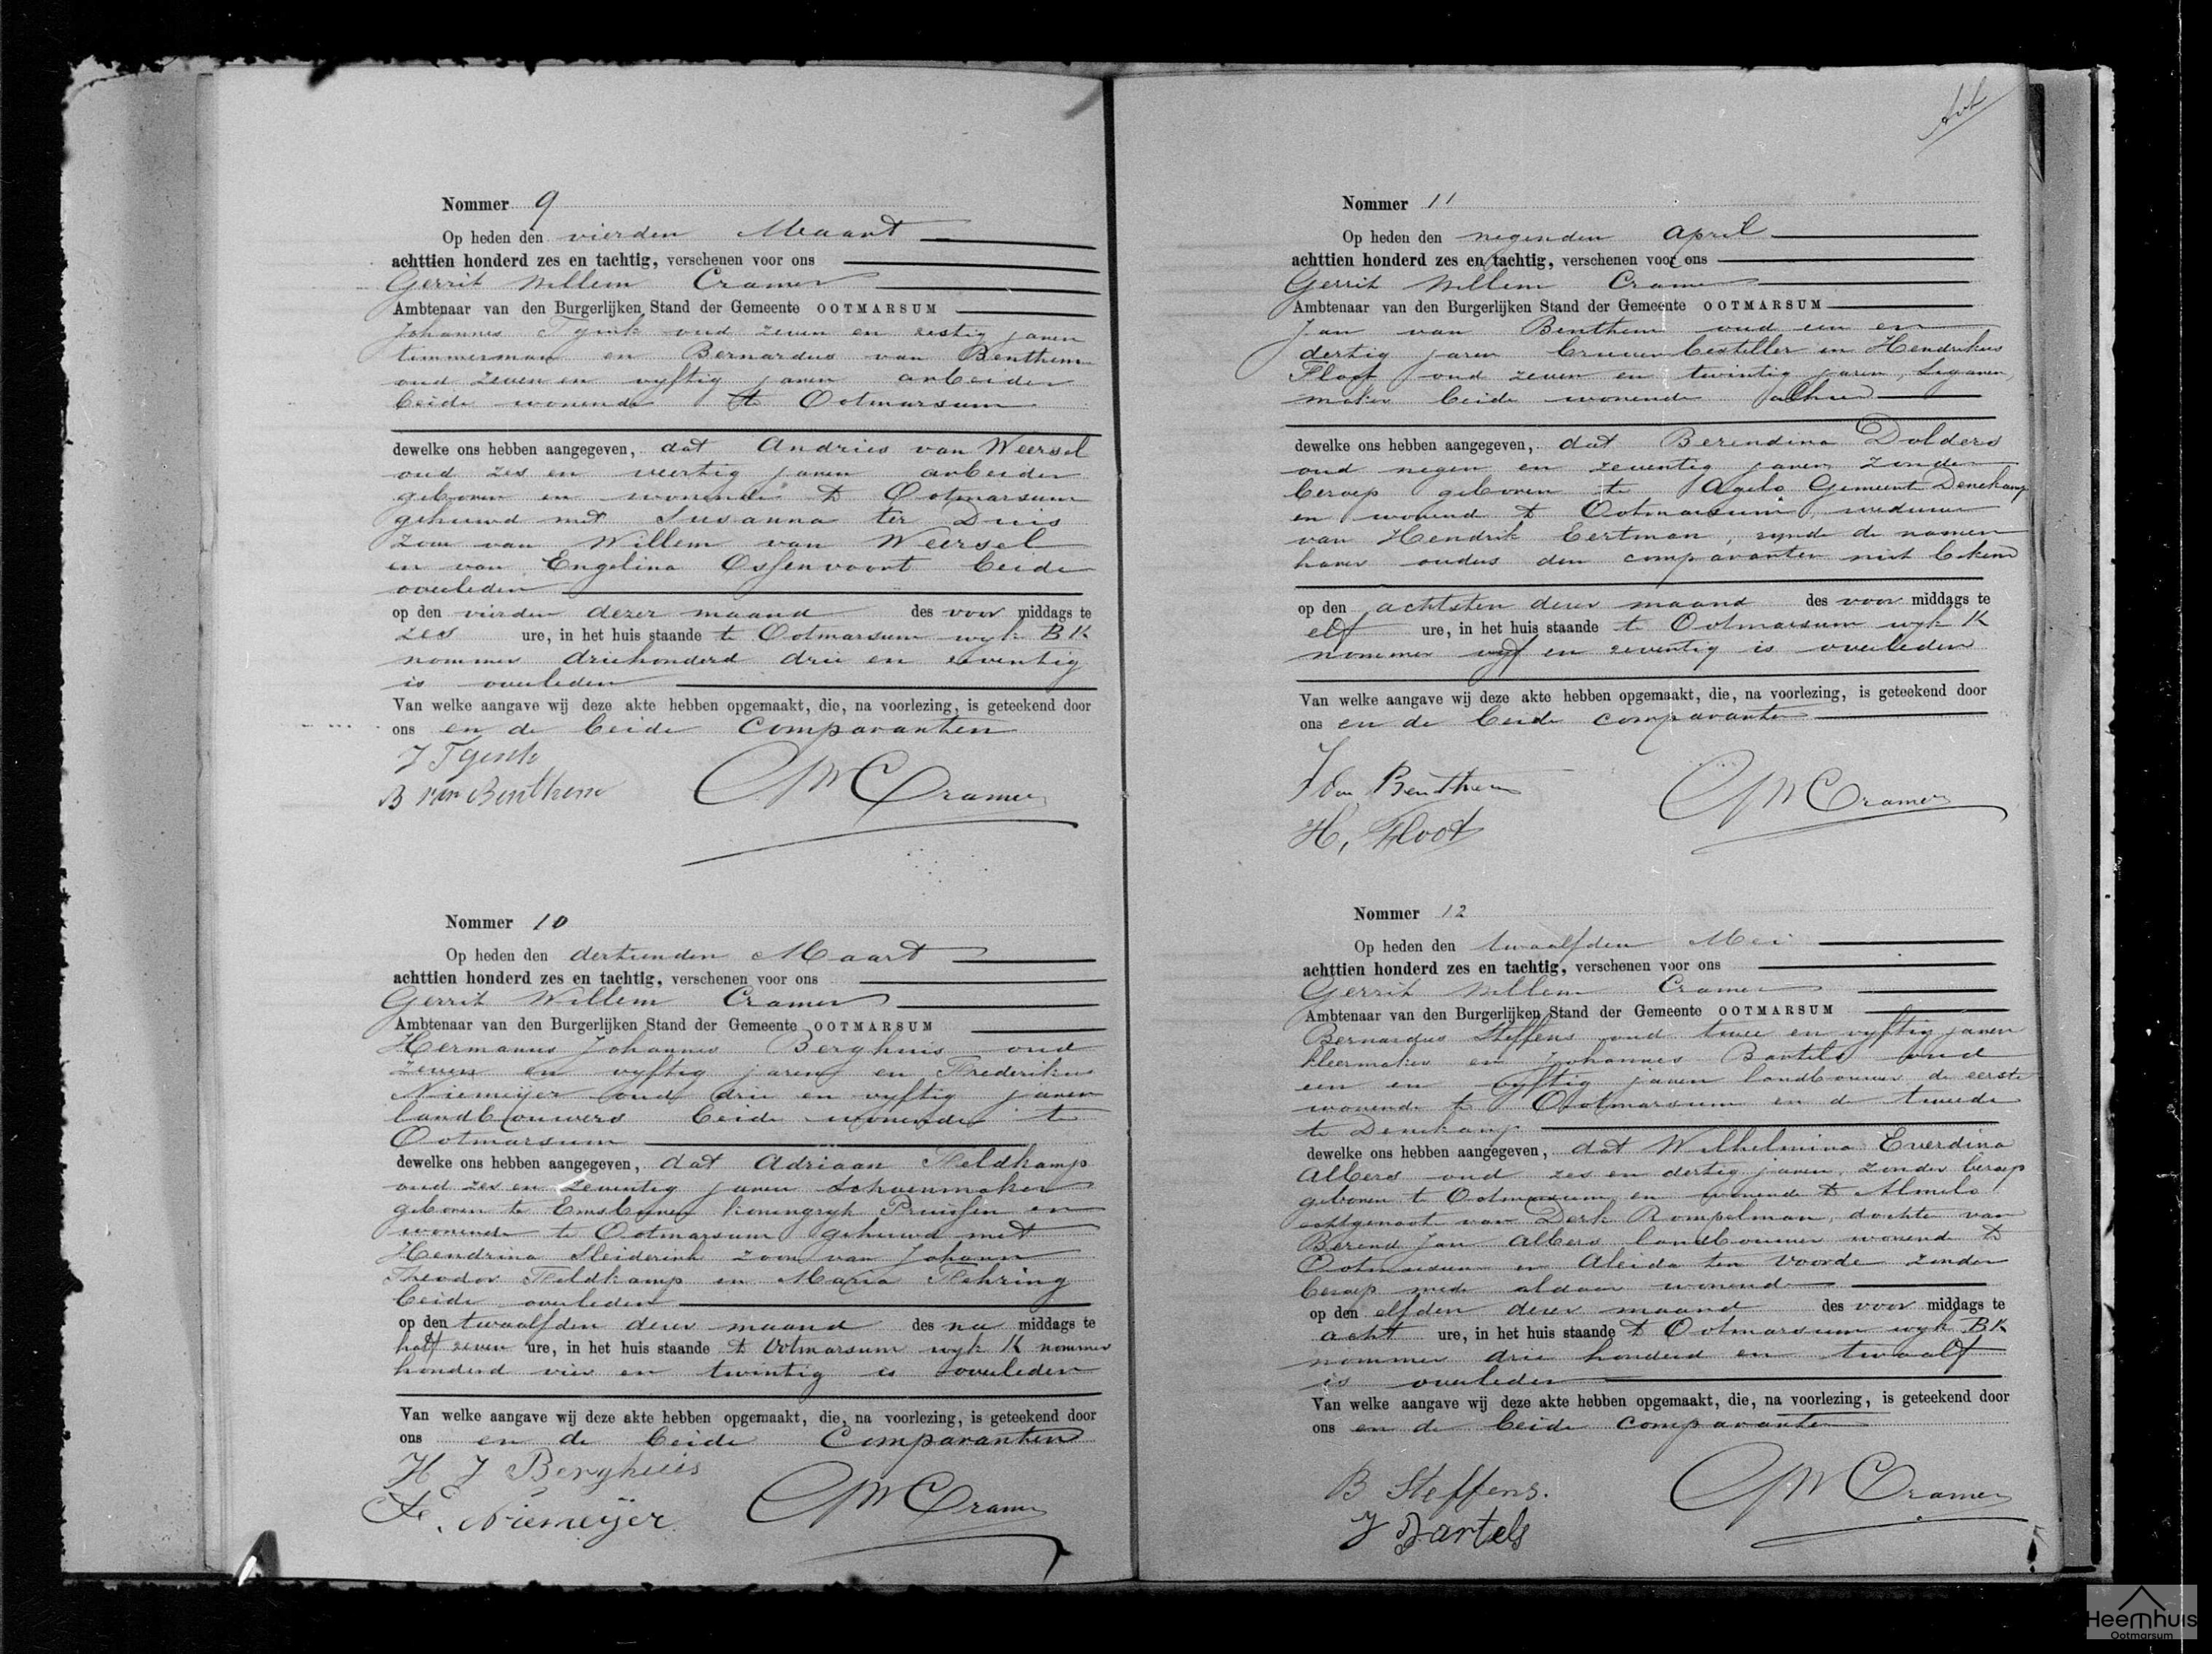 Nommer 9
Op heden den vierden Maart
achttien honderd zes en tachtig, verschenen voor ons
Gerrit Willem Cramer
Ambtenaar van den Burgerlijken Stand der Gemeente OOTMARSUM
Johannes oud zeven en zestig jaren
timmerman en Bernardus van Benthem
oud zeven en vyftig jaren arbeider
beide wonende te Ootmarsum
dewelke ons hebben aangegeven, dat Andries van Weersel
oud zes en veertig jaren arbeider
geboren en wonende te Ootmarsum
gehuwd met Susanna ter Duis
zoon van Willem van Weersel
en van Engelina Ossenvoort beide
overleden
op den vierden dezer maand des voor middags te
zes ure, in het huis staande te Ootmarsum wyk BK
nommer driehonderd drie en zeventig
is overleden
Van welke aangave wij deze akte hebben opgemaakt, die, na voorlezing, is geteekend door
ons en de beide Comparanten
J
B van Benthem
GW Cramer
Nommer 10
Op heden den dertienden Maart
achttien honderd zes en tachtig, verschenen voor ons
Gerrit Willem Cramer
Ambtenaar van den Burgerlijken Stand der Gemeente OOTMARSUM
Hermanus Johannes Berghuis oud
zeven en vyftig jaren en Frederikus
Niemeijer oud drie en vyftig jaren
landbouwers beide wonende te
Ootmarsum
dewelke ons hebben aangegeven, dat Adriaan Feldkamp
oud zes en zeventig jaren schoenmaker
geboren te Emsburen koningryk Pruissen en
wonende te Ootmarsum gehuwd met
Hendrina Sleiderink zoon van Johann
Theodor Feldkamp en Maria Fehring
beide overleden
op den twaalfden dezer maand des na middags te
half zeven ure, in het huis staande te Ootmarsum wyk K nommer
honderd vier en twintig is overleden
Van welke aangave wij deze akte hebben opgemaakt, die, na voorlezing, is geteekend door
ons en de beide Comparanten
H J Berghuis
Fr. Niemeijer
GW Cramer
Nommer 11
Op heden den negenden April
achttien honderd zes en tachtig, verschenen voor ons
Gerrit Willem Cramer
Ambtenaar van den Burgerlijken Stand der Gemeente OOTMARSUM
Jan van Benthem oud een en
dertig jaren brievenbesteller en Hendrikus
Floot oud zeven en twintig jaren, sigaren
maker beide wonende alhier
dewelke ons hebben aangegeven, dat Berendina Dolders
oud negen en zeventig jaren zonder
beroep geboren te Agelo Gemeente Denekamp
en wonend te Ootmarsum, weduwe
van Hendrik Eertman, zynde de namen
harer ouders den comparanten niet bekend
op den achtsten dezer maand des voor middags te
elf ure, in het huis staande te Ootmarsum wyk K
nommer vyf en zeventig is overleden
Van welke aangave wij deze akte hebben opgemaakt, die, na voorlezing, is geteekend door
ons en de beide comparanten
J Van Benthem
H, Floot
GW Cramer
Nommer 12
Op heden den twaalfden Mei
achttien honderd zes en tachtig, verschenen voor ons
Gerrit Willem Cramer
Ambtenaar van den Burgerlijken Stand der Gemeente OOTMARSUM
Bernardus Steffens oud twee en vyftig jaren
kleermaker en Johannes Bartels oud
een en vyftig jaren landbouwer de eerste
wonende te Ootmarsum en de tweede
te Denekamp
dewelke ons hebben aangegeven, dat Wilhelmina Everdina
Albers oud zes en dertig jaren, zonder beroep
geboren te Ootmarsum en wonende te Almelo
echtgenoot van Derk Rompelman, dochter van
Berend Jan Albers landbouwer wonend te
Ootmarsum en Aleida ten Voorde zonder
beroep mede aldaar wonend
op den elfden dezer maand des voor middags te
acht ure, in het huis staande te Ootmarsum wyk BK
nommer drie honderd en twaalf
is overleden
Van welke aangave wij deze akte hebben opgemaakt, die, na voorlezing, is geteekend door
ons en de beide comparanten
B Steffens.
J Bartels
GW Cramer
Heemhuis
Ootmarsum